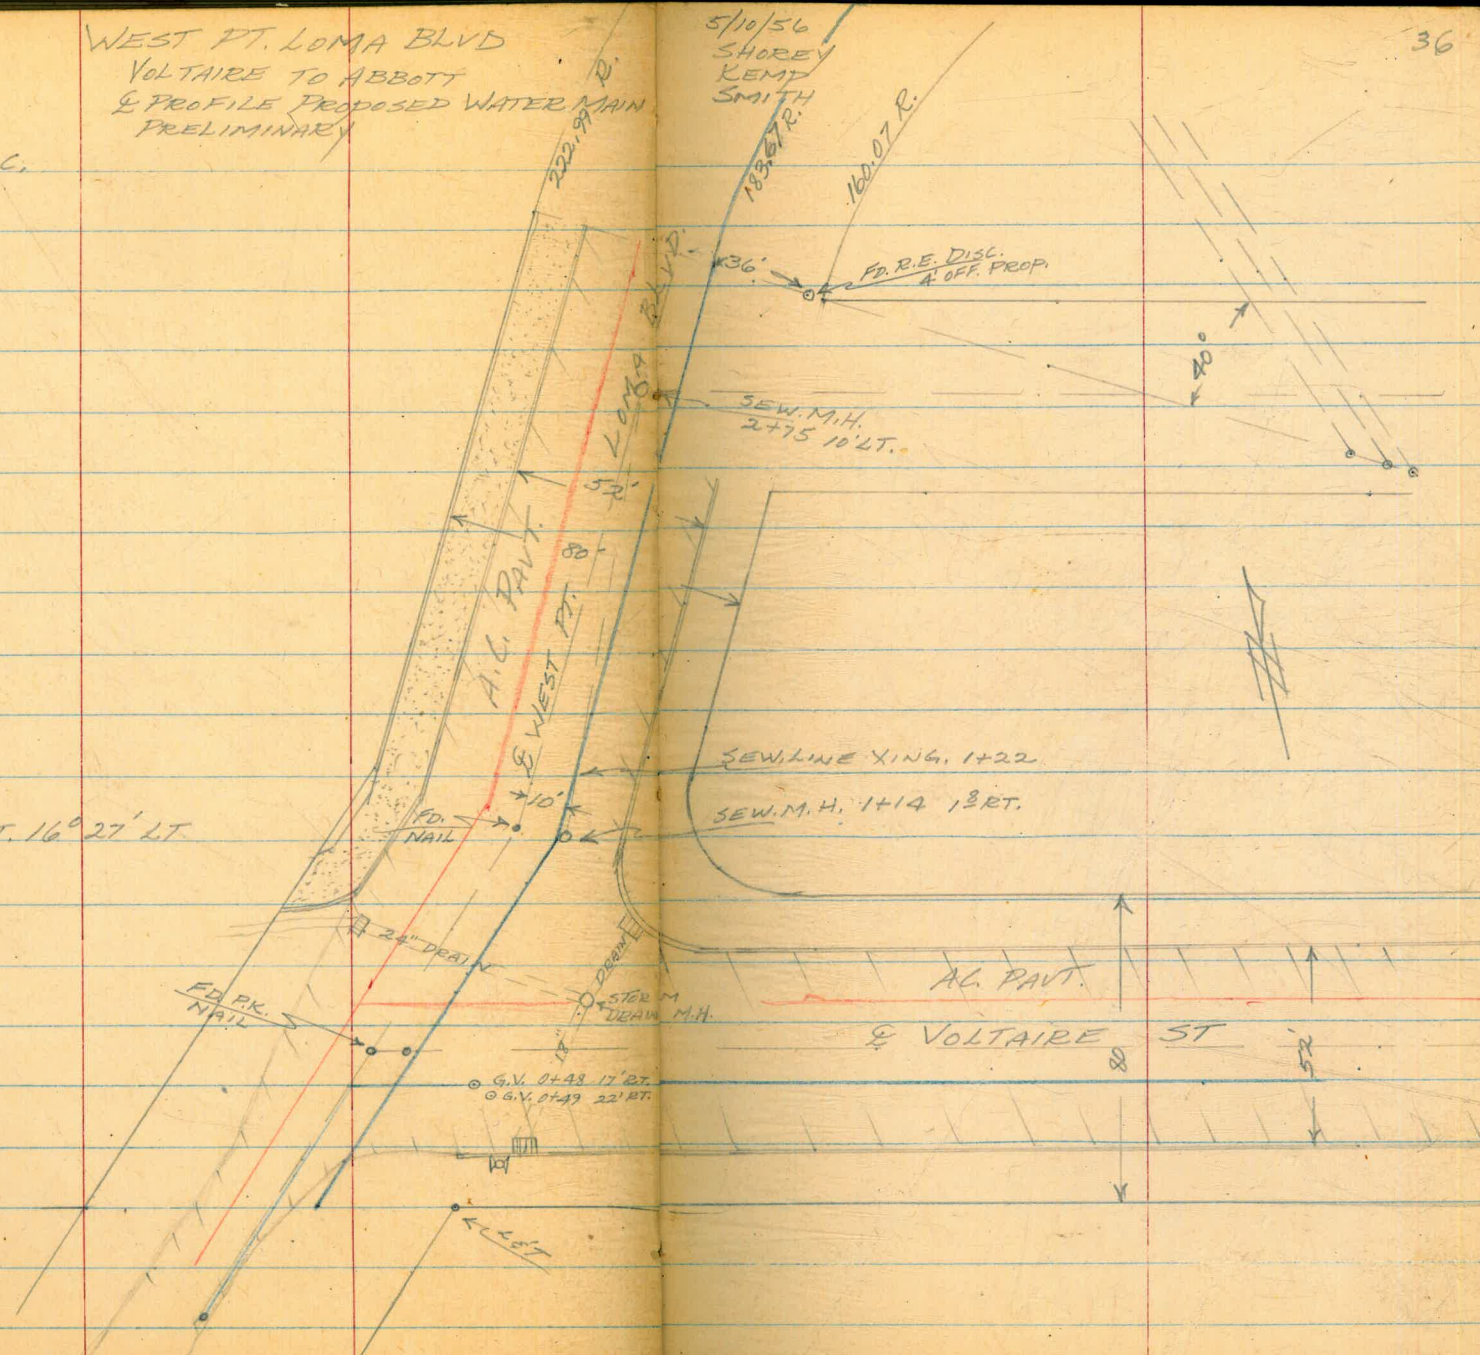 WEST PT. LOMA BLVD
VOLTAIRE TO ABBOTT
℄ PROFILE PROPOSED WATER MAIN
PRELIMINARY
5/10/56
SHOREY
KEMP
SMITH
36
C.
222.99 R.
183.67 R.
160.07 R.
36'
FD. R.E. DISC.
4' OFF. PROP.
40°
SEW. M.H.
2+75 10' LT.
52'
80
A.C. PAVT.
℄ WEST PT. LOMA BLVD.
SEW. LINE XING. 1+22
10'
SEW. M.H. 1+14 1.8 RT.
FD.
NAIL
T. 16° 27' LT
24" DRAIN
DRAIN
A.C. PAVT.
FD. P.K.
NAIL
STORM
DRAIN M.H.
18"
℄ VOLTAIRE ST
80
52'
G.V. 0+48 17' RT.
G.V. 0+49 22' RT.
L&T